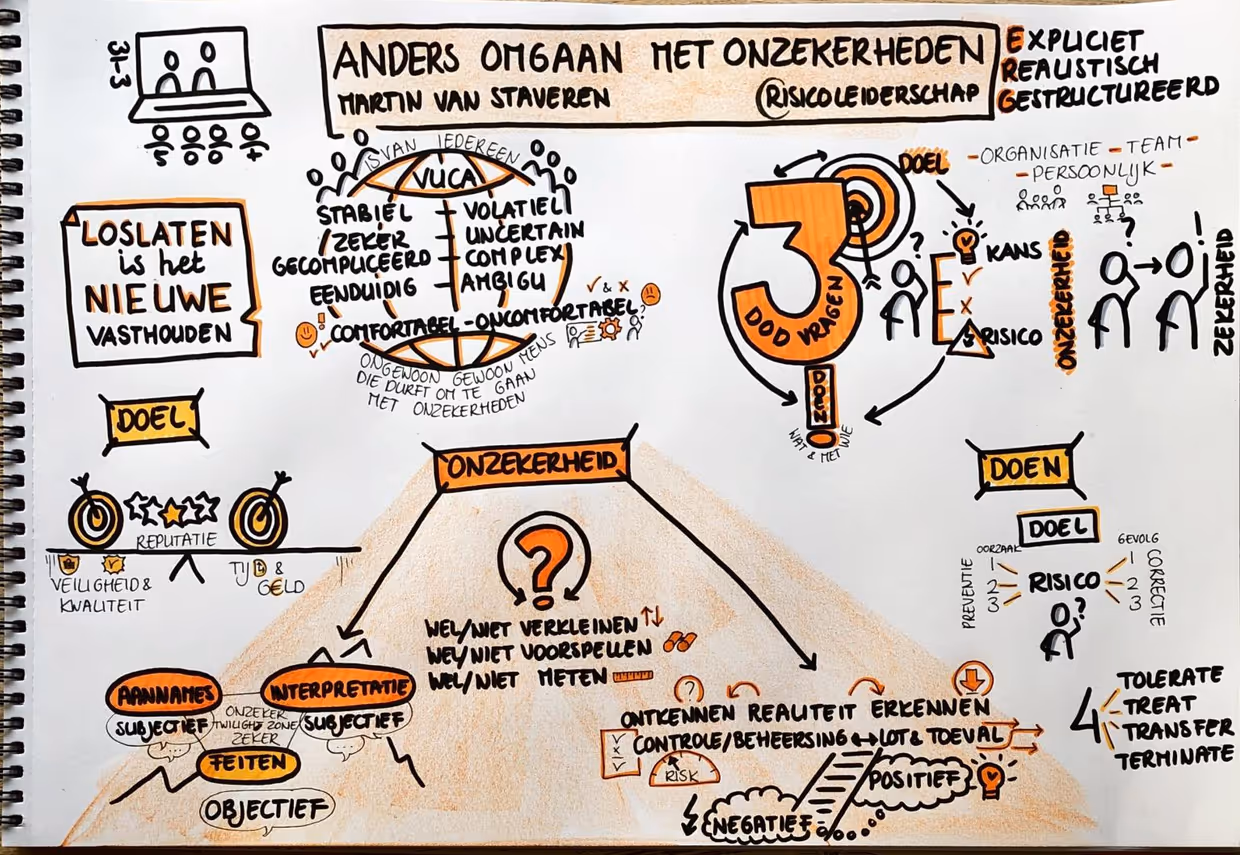 31-3
ANDERS OMGAAN MET ONZEKERHEDEN
MARTIN VAN STAVEREN
RISICOLEIDERSCHAP
EXPLICIET
REALISTISCH
GESTRUCTUREERD
500+
LOSLATEN
is het
NIEUWE
VASTHOUDEN
IS VAN IEDEREEN
VUCA
STABIEL - VOLATIEL
ZEKER - UNCERTAIN
GECOMPLICEERD - COMPLEX
EENDUIDIG - AMBIGU
✓ & x
COMFORTABEL - ONCOMFORTABEL
ONGEWOON GEWOON MENS
DIE DURFT OM TE GAAN
MET ONZEKERHEDEN
3
DOD VRAGEN
DOEN
WAT & MET WIE
DOEL
- ORGANISATIE - TEAM -
- PERSOONLIJK -
?
KANS
✓
x
RISICO
ONZEKERHEID
? !
ZEKERHEID
DOEL
REPUTATIE
VEILIGHEID &
KWALITEIT
TIJD &
GELD
ONZEKERHEID
?
WEL/NIET VERKLEINEN
WEL/NIET VOORSPELLEN
WEL/NIET METEN
AANNAMES
SUBJECTIEF
INTERPRETATIE
SUBJECTIEF
ONZEKER
TWILIGHT ZONE
ZEKER
FEITEN
OBJECTIEF
?
ONTKENNEN REALITEIT ERKENNEN
CONTROLE/BEHEERSING ↔ LOT & TOEVAL
RISK
POSITIEF
NEGATIEF
DOEN
DOEL
OORZAAK
GEVOLG
PREVENTIE
1
2
3
RISICO
1
2
3
CORRECTIE
?
4
TOLERATE
TREAT
TRANSFER
TERMINATE